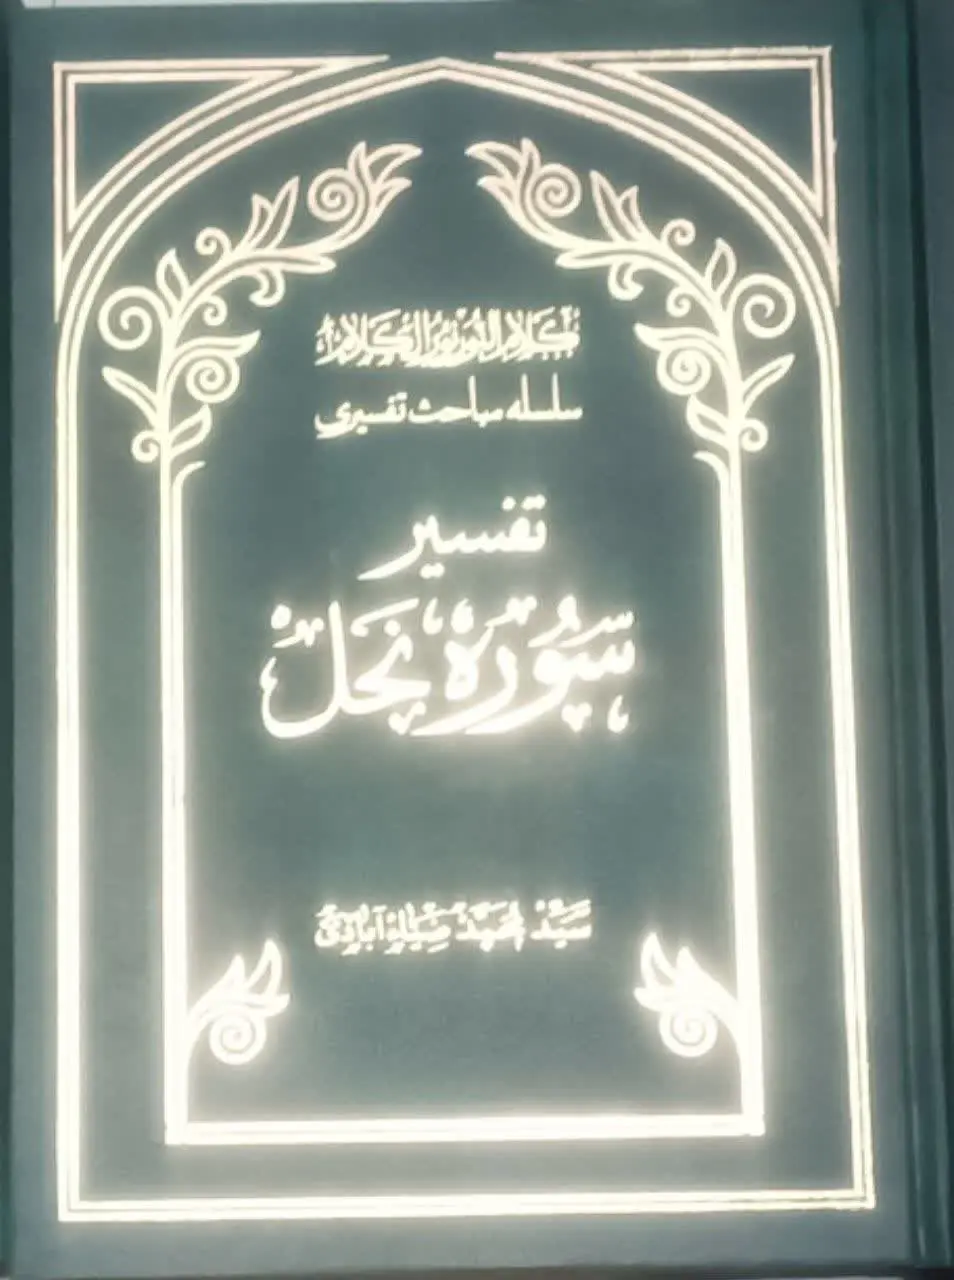 كلام النور نور الكلام
سلسله مباحث تفسیری
تفسیر
سوره نحل
سید محمد ضیاءآبادی